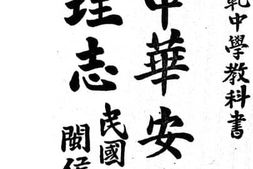 範中學教科書
中華安
理志
民國
閩侯